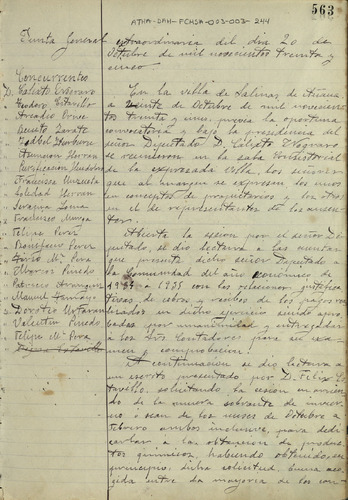 563
ATHA-DAH-FCHSA-003-003-244
Junta General extraordinaria del dia 20 de
Octubre de mil novecientos treinta y
cinco
Concurrentes
D. Calixto
Teodoro
Arcadio Ponce
Benito Zarate
Isabel
Asuncion Herran
Purificacion
Francisca
Soledad Herran
Serapia
Francisco
Felipe Pera
Pera
Mª Pera
Marcos Pinedo
Patricio
Manuel
Doroteo
Valentin Pinedo
Felipe Mª Pera
En la villa de Salinas de Añana
a veinte de Octubre de mil novecien-
tos treinta y cinco, previa la oportuna
convocatoria y bajo la presidencia del
señor Diputado D. Calixto
se reunieron en la sala Consistorial
de la expresada Villa, los señores
que al margen se expresan los unos
en concepto de propietarios y los otros
en el de representantes de los ausen-
tes.
Abierta la sesion por el señor Di-
putado, se dio lectura a las cuentas
que presenta dicho señor Diputado de
la Comunidad del año económico de
1934 a 1935 con las relaciones justifica-
tivas de cobros y recibos de los pagos rea-
lizados en dicho servicio siendo apro-
badas por unanimidad y entregadas
a los Sres Contadores para su exa-
men y comprobacion.
A continuacion se dio lectura a
un escrito presentado por D. Felix
solicitando la cesion en arrien-
do de la muera sobrante de invier-
no o sean de los meses de Octubre a
Febrero ambos inclusive, para dedi-
carlas a la obtencion de produc-
tos quimicos, habiendo obtenido, en
principio, dicha solicitud, buena aco-
gida entre la mayoria de los con-